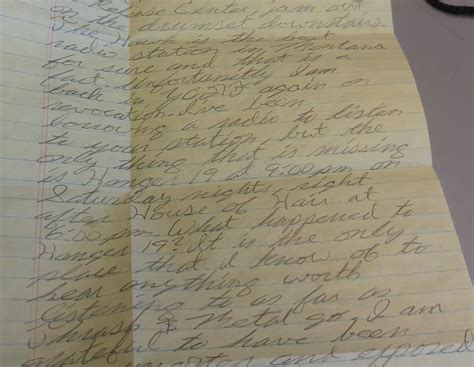 Center, jam out
on the drumset downstairs.
The House is the best
radio station in Montana
for sure and that is a
fact. Unfortunitly I am
back in YCDF again on
revocation. I've been
borrowing a radio to listen
to your station, but the
only thing that is missing
is Hanger 19 at 9:00 pm on
Saturday night, right
after House of Hair at
6:00 pm. What happened to
Hanger 19? It is the only
place that I know of to
hear anything worth
listening to as far as
Thrash & Metal go. I am
grateful to have been
and exposed